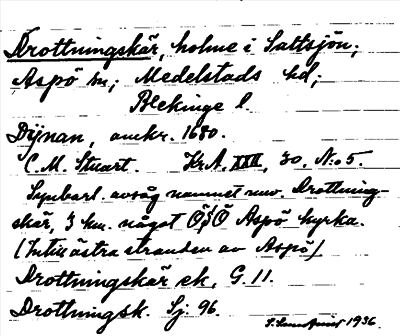 Drottningskär, holme i Saltsjön;
Aspö sn; Medelstads hd;
Blekinge l.
Dijnan, omkr. 1680.
C. M. Stuart. Kr. A. XXII, 30, No 5.
Synbarl. avsåg namnet nuv. Drottning-
skär, 3 km. något Ö/Ö Aspö kyrka.
(Intill östra stranden av Aspö)
Drottningskär ek, G. 11.
Drottningsk. Sj. 96
1936